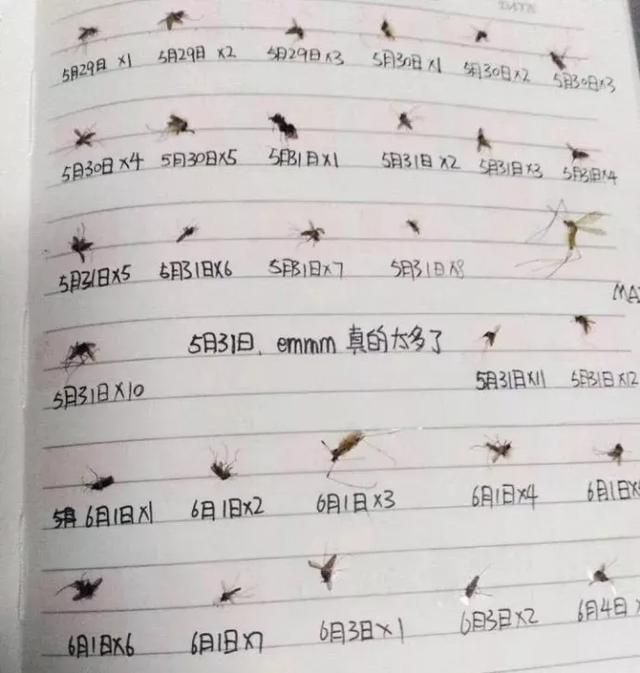 DATE
5月29日 x1 5月29日 x2 5月29日 x3 5月30日x1 5月30日x2 5月30日x3
5月30日x4 5月30日x5 5月31日x1 5月31日x2 5月31日x3 5月31日x4
5月31日x5 5月31日x6 5月31日x7 5月31日x8
5月31日x10 5月31日、emmm 真的太多了 5月31日x11 5月31日x12
6月1日x1 6月1日x2 6月1日x3 6月1日x4 6月1日x
6月1日x6 6月1日x7 6月3日x1 6月3日x2 6月4日